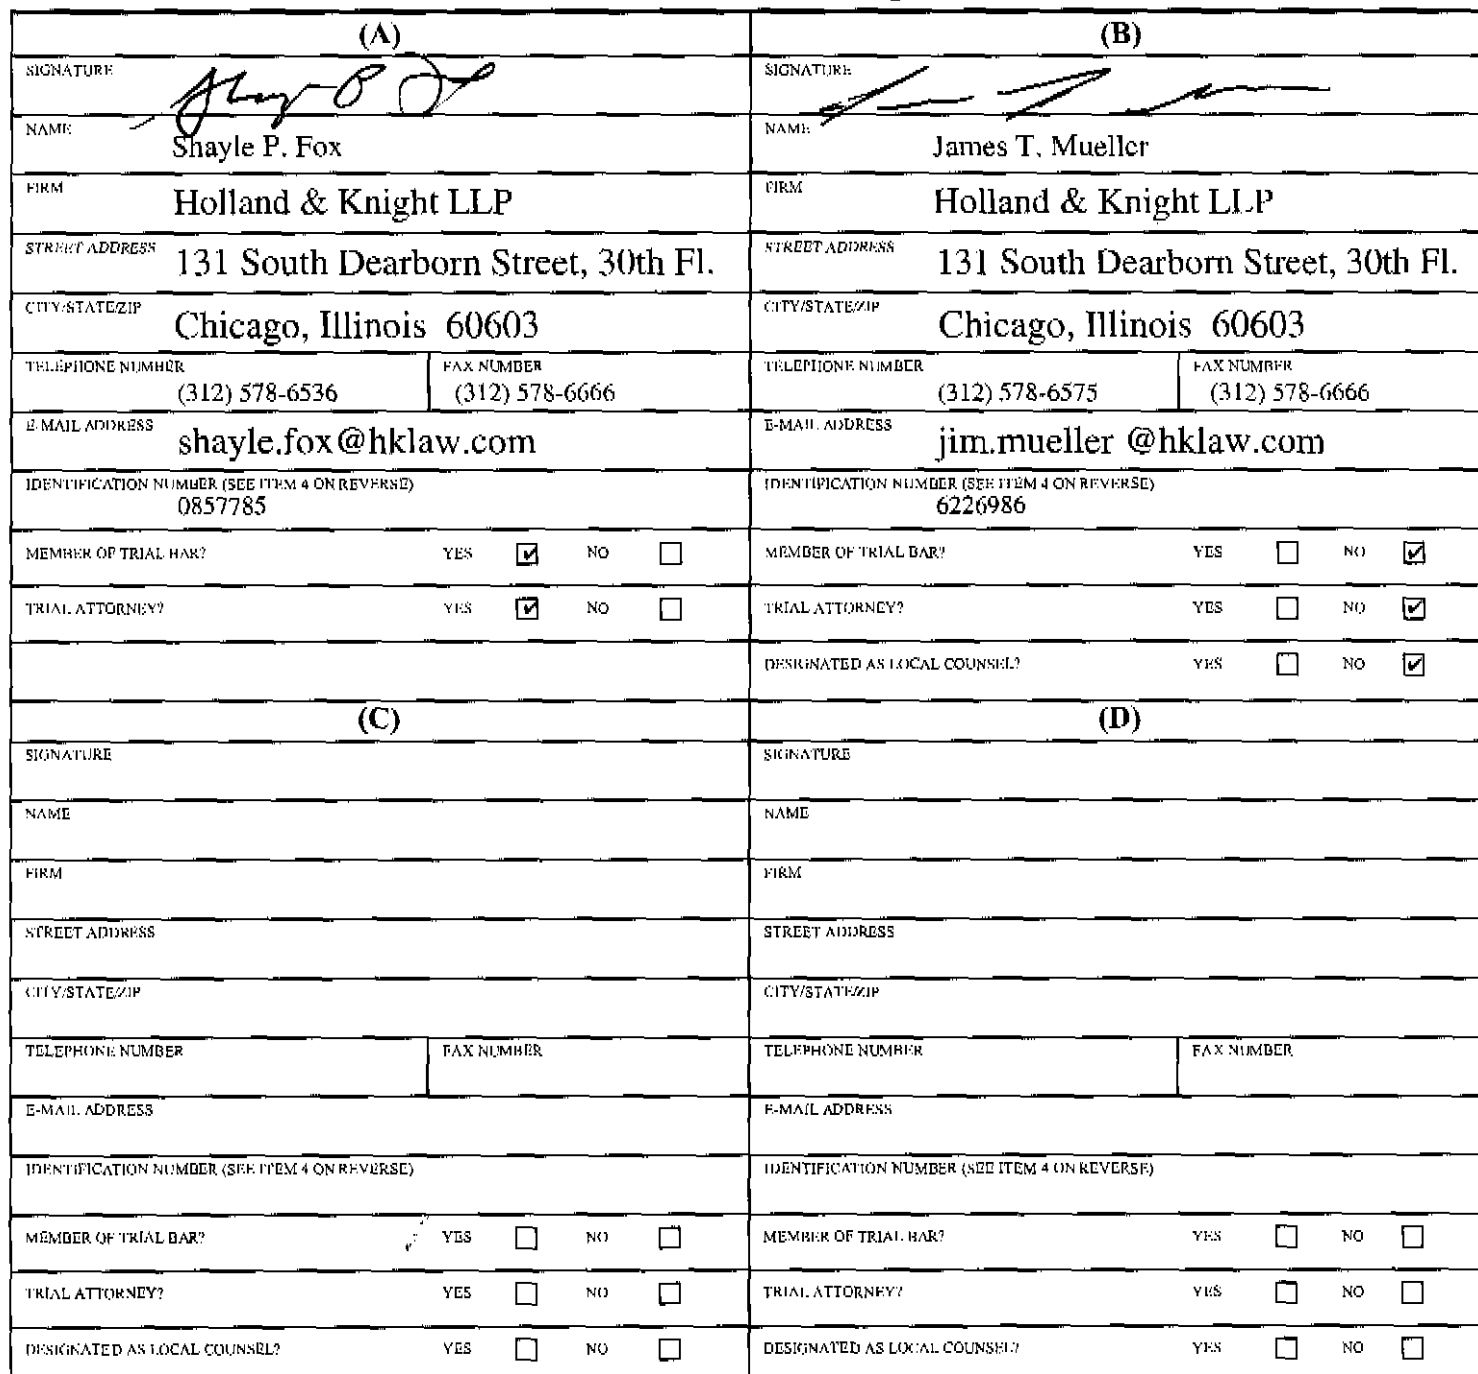 (A)
SIGNATURE
NAME
Shayle P. Fox
FIRM
Holland & Knight LLP
STREET ADDRESS
131 South Dearborn Street, 30th Fl.
CITY/STATE/ZIP
Chicago, Illinois 60603
TELEPHONE NUMBER
(312) 578-6536
FAX NUMBER
(312) 578-6666
E-MAIL ADDRESS
shayle.fox@hklaw.com
IDENTIFICATION NUMBER (SEE ITEM 4 ON REVERSE)
0857785
MEMBER OF TRIAL BAR? YES ☑ NO ☐
TRIAL ATTORNEY? YES ☑ NO ☐
(B)
SIGNATURE
NAME
James T. Mueller
FIRM
Holland & Knight LLP
STREET ADDRESS
131 South Dearborn Street, 30th Fl.
CITY/STATE/ZIP
Chicago, Illinois 60603
TELEPHONE NUMBER
(312) 578-6575
FAX NUMBER
(312) 578-6666
E-MAIL ADDRESS
jim.mueller @hklaw.com
IDENTIFICATION NUMBER (SEE ITEM 4 ON REVERSE)
6226986
MEMBER OF TRIAL BAR? YES ☐ NO ☑
TRIAL ATTORNEY? YES ☐ NO ☑
DESIGNATED AS LOCAL COUNSEL? YES ☐ NO ☑
(C)
SIGNATURE
NAME
FIRM
STREET ADDRESS
CITY/STATE/ZIP
TELEPHONE NUMBER
FAX NUMBER
E-MAIL ADDRESS
IDENTIFICATION NUMBER (SEE ITEM 4 ON REVERSE)
MEMBER OF TRIAL BAR? YES ☐ NO ☐
TRIAL ATTORNEY? YES ☐ NO ☐
DESIGNATED AS LOCAL COUNSEL? YES ☐ NO ☐
(D)
SIGNATURE
NAME
FIRM
STREET ADDRESS
CITY/STATE/ZIP
TELEPHONE NUMBER
FAX NUMBER
E-MAIL ADDRESS
IDENTIFICATION NUMBER (SEE ITEM 4 ON REVERSE)
MEMBER OF TRIAL BAR? YES ☐ NO ☐
TRIAL ATTORNEY? YES ☐ NO ☐
DESIGNATED AS LOCAL COUNSEL? YES ☐ NO ☐